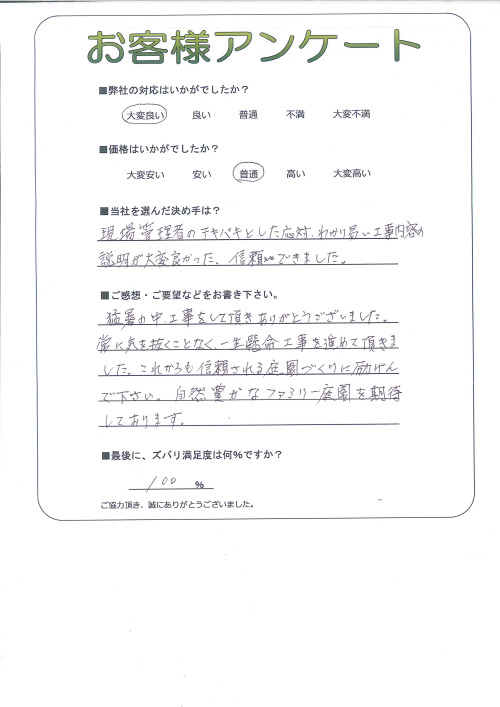 お客様アンケート
■弊社の対応はいかがでしたか？
大変良い 良い 普通 不満 大変不満
■価格はいかがでしたか？
大変安い 安い 普通 高い 大変高い
■当社を選んだ決め手は？
現場管理者のテキパキとした応対、わかり易い工事内容の
説明が大変良かった。信頼できました。
■ご感想・ご要望などをお書き下さい。
猛暑の中、工事をして頂きありがとうございました。
常に気を抜くことなく、一生懸命工事を進めて頂きま
した。これからも信頼される庭園づくりに励げん
で下さい。自然豊かなファミリー庭園を期待
しております。
■最後に、ズバリ満足度は何％ですか？
100 ％
ご協力頂き、誠にありがとうございました。